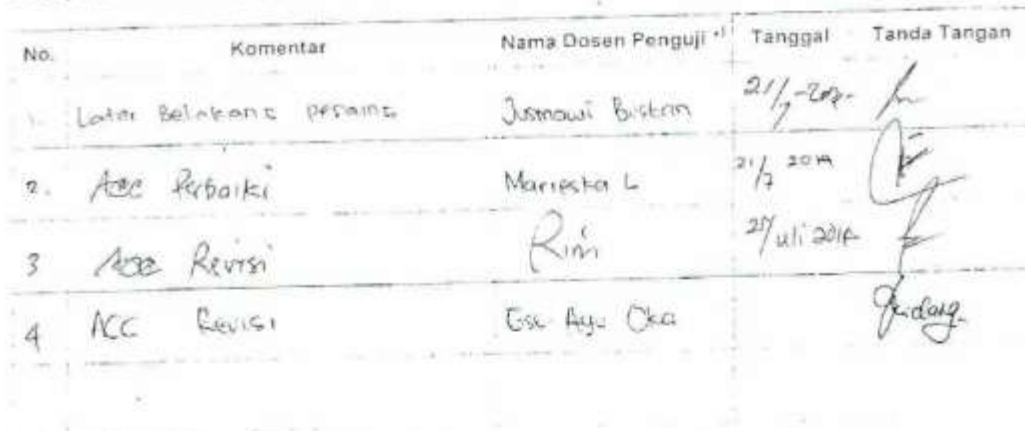 No. Komentar Nama Dosen Penguji *) Tanggal Tanda Tangan
1. Latar Belakang 21/7
2. Acc Perbaiki Marieska L 21/7 2014
3 Acc Revisi Rini Juli 2014
4 ACC Revisi Ayu Oka